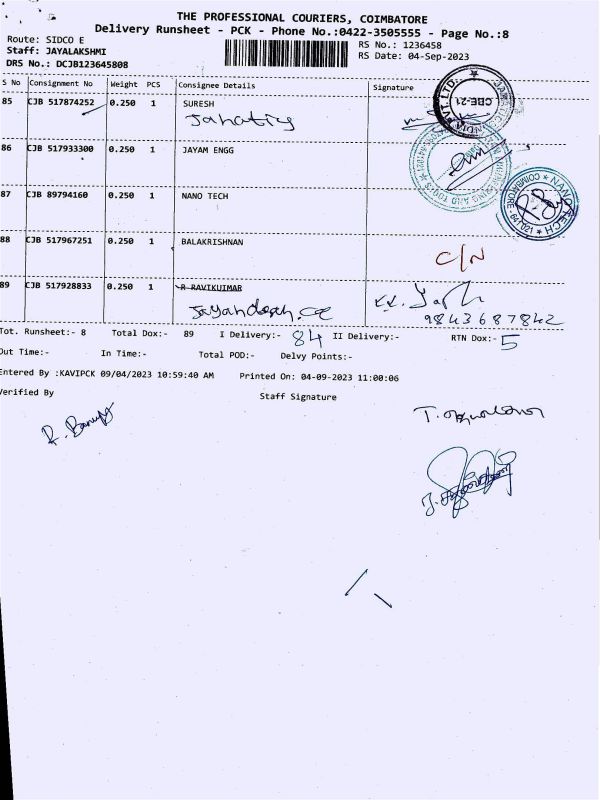 THE PROFESSIONAL COURIERS, COIMBATORE
Delivery Runsheet - PCK - Phone No.:0422-3505555 - Page No.:8
Route: SIDCO E RS No.: 1236458
Staff: JAYALAKSHMI RS Date: 04-Sep-2023
DRS No.: DCJB123645808
S No Consignment No Weight PCS Consignee Details Signature
85 CJB 517874252 0.250 1 SURESH
86 CJB 517933300 0.250 1 JAYAM ENGG
87 CJB 89794160 0.250 1 NANO TECH
88 CJB 517967251 0.250 1 BALAKRISHNAN
C/N
89 CJB 517928833 0.250 1 R RAVIKUIMAR
9843687842
Tot. Runsheet:- 8 Total Dox:- 89 I Delivery:- 84 II Delivery:- RTN Dox:- 5
Out Time:- In Time:- Total POD:- Delvy Points:-
Entered By :KAVIPCK 09/04/2023 10:59:40 AM Printed On: 04-09-2023 11:00:06
Verified By Staff Signature
CBE-21
NANO TECH
COIMBATORE - 641 021